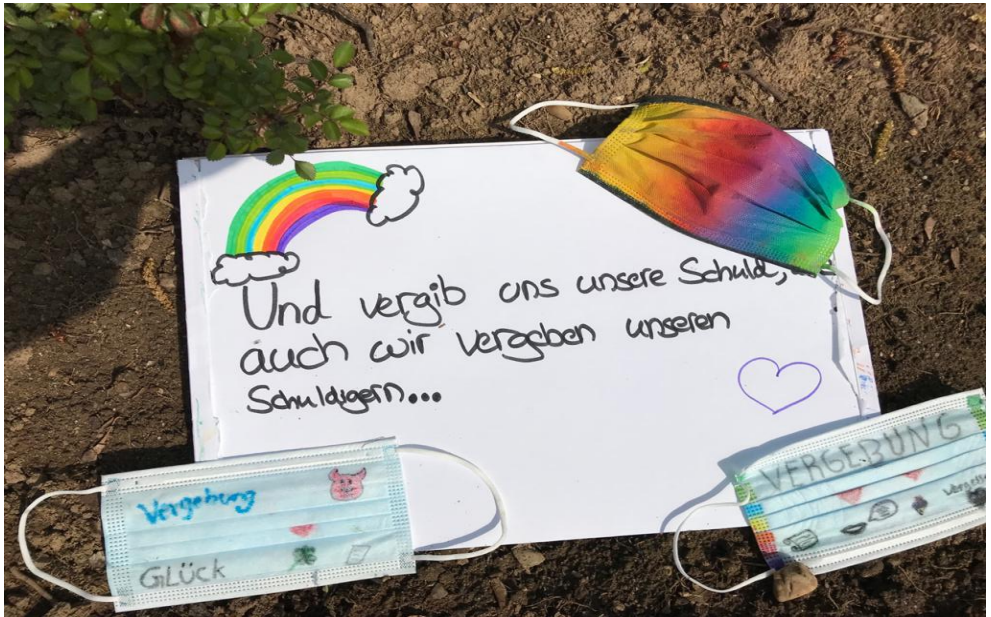 Und vergib uns unsere Schuld,
auch wir vergeben unseren
Schuldigern...
Vergebung
GLücK
VERGEBUNG